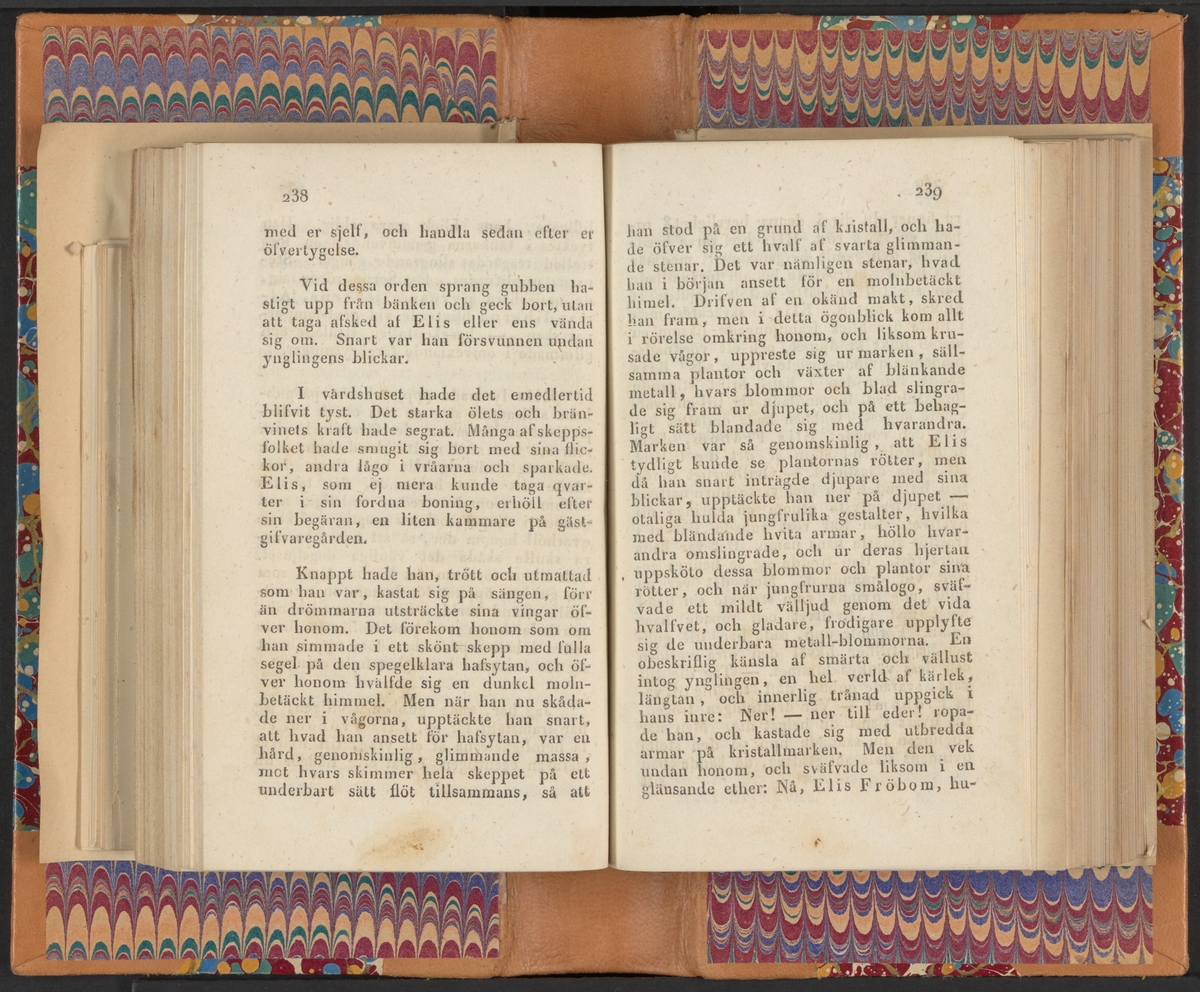 238
med er sjelf, och handla sedan efter er
öfvertygelse.
Vid dessa orden sprang gubben ha-
stigt upp från bänken och geck bort, utan
att taga afsked af Elis eller ens vända
sig om. Snart var han försvunnen undan
ynglingens blickar.
I vårdshuset hade det emedlertid
blifvit tyst. Det starka ölets och brän-
vinets kraft hade segrat. Många af skepps-
folket hade smugit sig bort med sina flic-
kor, andra lågo i vråarna och sparkade.
Elis, som ej mera kunde taga qvar-
ter i sin fordna boning, erhöll efter
sin begäran, en liten kammare på gäst-
gifvaregården.
Knappt hade han, trött och utmattad
som han var, kastat sig på sängen, förr
än drömmarna utsträckte sina vingar öf-
ver honom. Det förekom honom som om
han simmade i ett skönt skepp med fulla
segel på den spegelklara hafsytan, och öf-
ver honom hvälfde sig en dunkel moln-
betäckt himmel. Men när han nu skåda-
de ner i vågorna, upptäckte han snart,
att hvad han ansett för hafsytan, var en
hård, genomskinlig, glimmande massa,
mot hvars skimmer hela skeppet på ett
underbart sätt flöt tillsammans, så att
239
han stod på en grund af kristall, och ha-
de öfver sig ett hvalf af svarta glimman-
de stenar. Det var nämligen stenar, hvad
han i början ansett för en molnbetäckt
himel. Drifven af en okänd makt, skred
han fram, men i detta ögonblick kom allt
i rörelse omkring honom, och liksom kru-
sade vågor, uppreste sig ur marken, säll-
samma plantor och växter af blänkande
metall, hvars blommor och blad slingra-
de sig fram ur djupet, och på ett behag-
ligt sätt blandade sig med hvarandra.
Marken var så genomskinlig, att Elis
tydligt kunde se plantornas rötter, men
då han snart inträgde djupare med sina
blickar, upptäckte han ner på djupet —
otaliga hulda jungfrulika gestalter, hvilka
med bländande hvita armar, höllo hvar-
andra omslingrade, och ur deras hjertan
uppsköto dessa blommor och plantor sina
rötter, och när jungfrurna smålogo, sväf-
vade ett mildt välljud genom det vida
hvalfvet, och gladare, frodigare upplyfte
sig de underbara metall-blommorna. En
obeskriflig känsla af smärta och vällust
intog ynglingen, en hel verld af kärlek,
längtan, och innerlig trånad uppgick i
hans inre: Ner! — ner till eder! ropa-
de han, och kastade sig med utbredda
armar på kristallmarken. Men den vek
undan honom, och sväfvade liksom i en
glänsande ether: Nå, Elis Fröbom, hu-